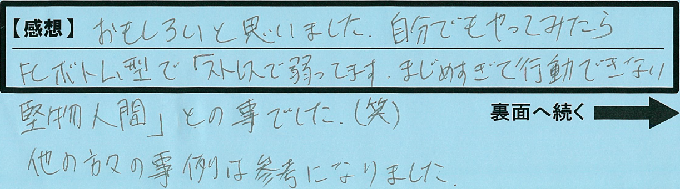 【感想】おもしろいと思いました。自分でもやってみたら
FCボトム型で「ストレスで弱ってます。まじめすぎて行動できない
堅物人間」との事でした。(笑)
裏面へ続く
他の方々の事例は参考になりました。